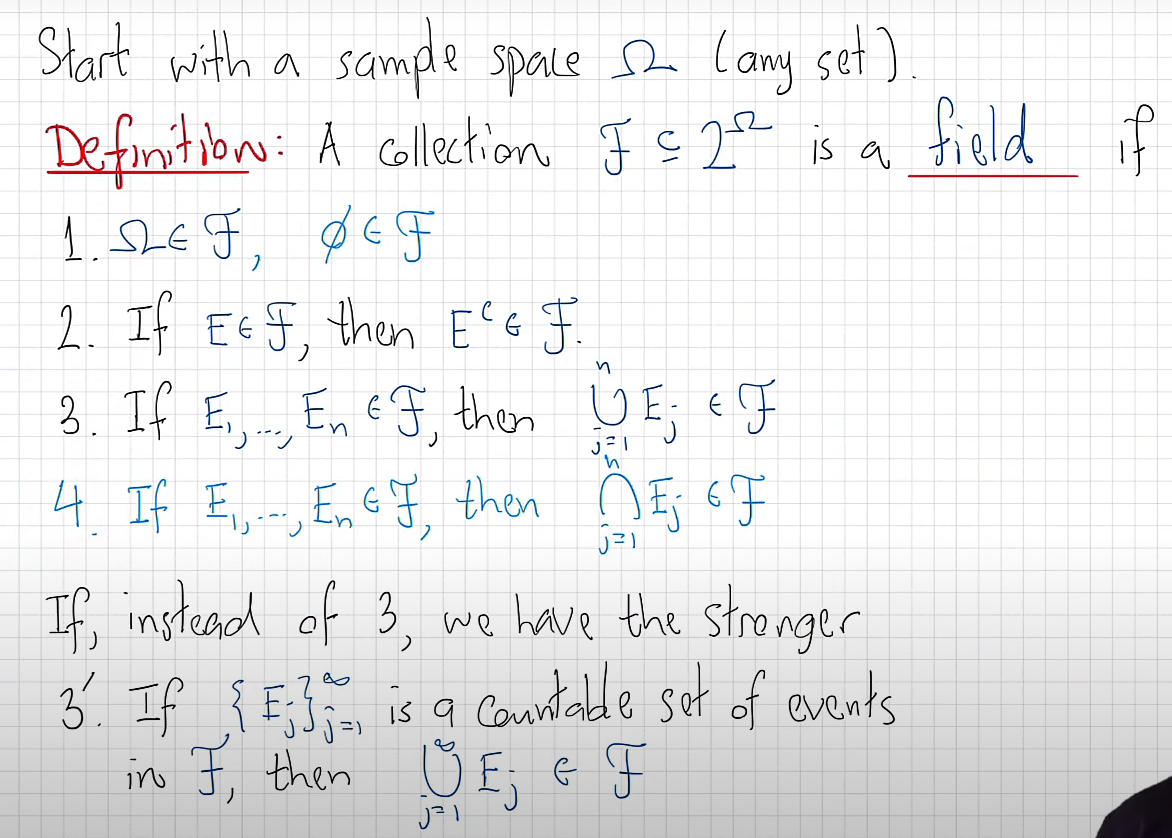 Start with a sample space Ω (any set).
Definition: A collection ℱ ⊆ 2^Ω is a field if
1. Ω ∈ ℱ, ∅ ∈ ℱ
2. If E ∈ ℱ, then E^c ∈ ℱ.
3. If E₁, ..., Eₙ ∈ ℱ, then ⋃_{j=1}^{n} E_j ∈ ℱ
4. If E₁, ..., Eₙ ∈ ℱ, then ⋂_{j=1}^{n} E_j ∈ ℱ
If, instead of 3, we have the stronger
3'. If {E_j}_{j=1}^{∞} is a countable set of events
in ℱ, then ⋃_{j=1}^{∞} E_j ∈ ℱ